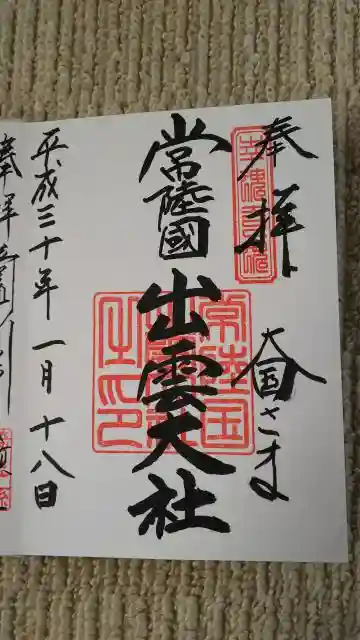 奉拝
大国さま
常陸國
出雲大社
常陸国出雲大社之印
平成三十年一月十八日
奉拝